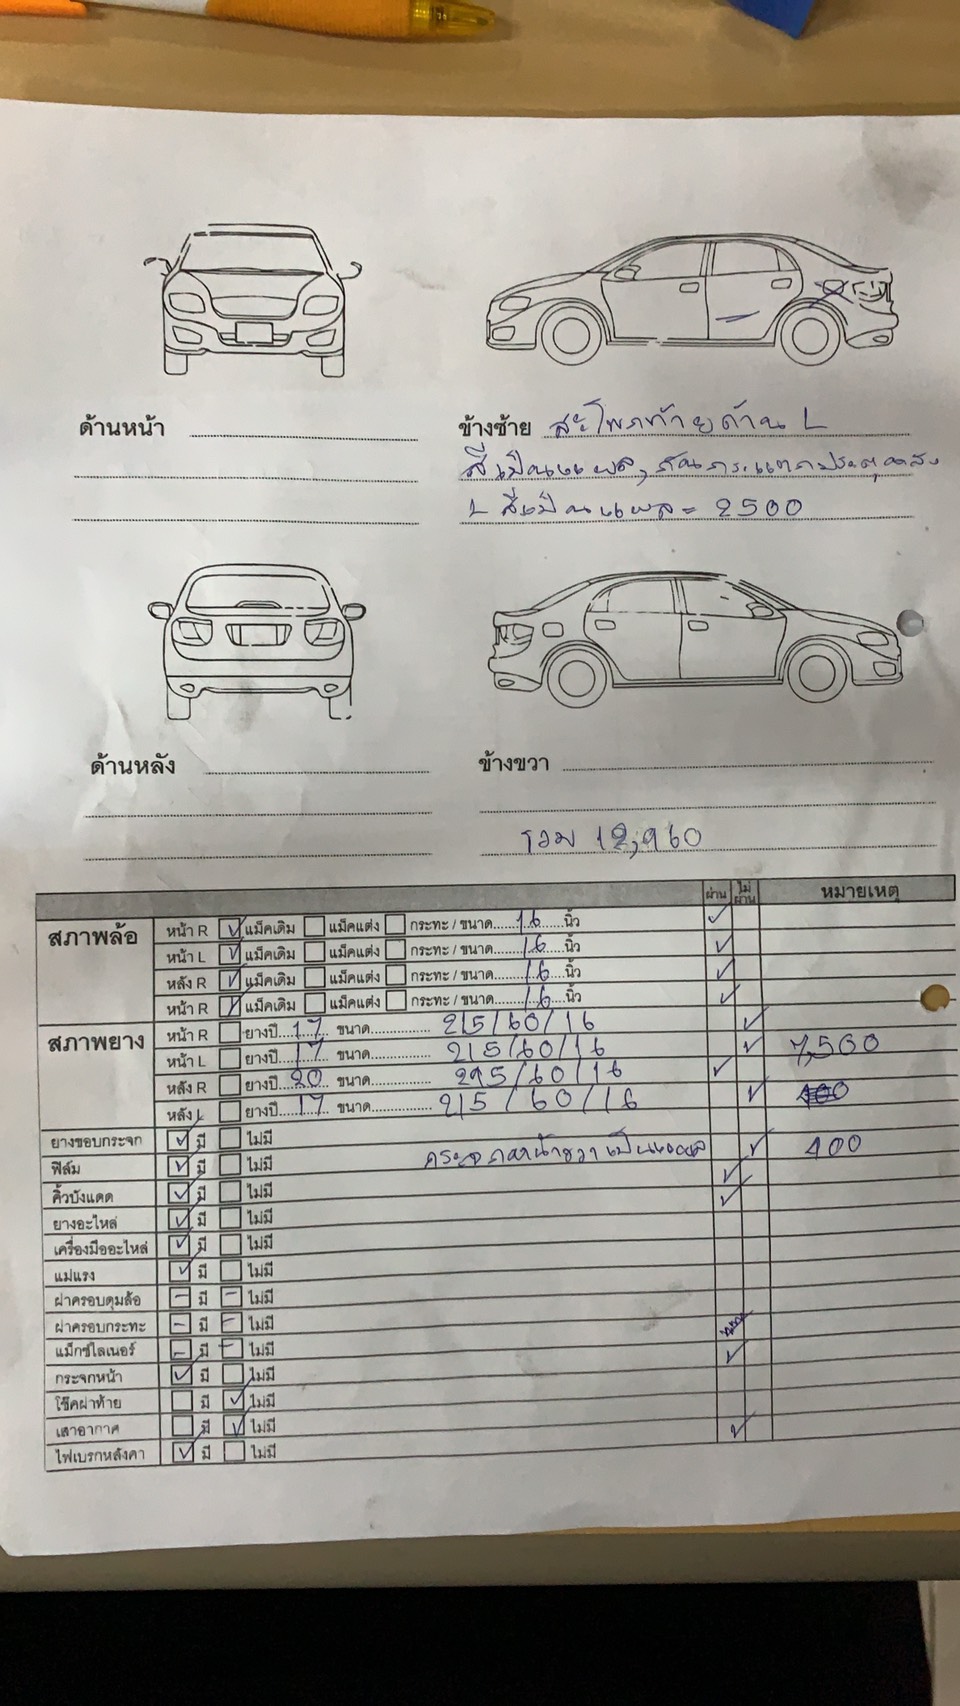 ด้านหน้า
ข้างซ้าย สะโพกท้ายด้าน L
สีเป็นแผล, กันกระแทกประตูหลัง
L สีเป็นแผล = 2500
ด้านหลัง
ข้างขวา
รวม 12,960
ผ่าน ไม่ผ่าน หมายเหตุ
สภาพล้อ หน้า R แม็คเดิม แม็คแต่ง กระทะ / ขนาด 16 นิ้ว
หน้า L แม็คเดิม แม็คแต่ง กระทะ / ขนาด 16 นิ้ว
หลัง R แม็คเดิม แม็คแต่ง กระทะ / ขนาด 16 นิ้ว
หน้า R แม็คเดิม แม็คแต่ง กระทะ / ขนาด 16 นิ้ว
สภาพยาง หน้า R ยางปี 17 ขนาด 215/60/16
หน้า L ยางปี 17 ขนาด 215/60/16 7,500
หลัง R ยางปี 20 ขนาด 215/60/16
หลัง L ยางปี 17 ขนาด 215/60/16
ยางขอบกระจก มี ไม่มี กระจกหน้าขวาเป็นรอย 400
ฟิล์ม มี ไม่มี
คิ้วบังแดด มี ไม่มี
ยางอะไหล่ มี ไม่มี
เครื่องมืออะไหล่ มี ไม่มี
แม่แรง มี ไม่มี
ฝาครอบดุมล้อ มี ไม่มี
ฝาครอบกระทะ มี ไม่มี
แม็กซ์ไลเนอร์ มี ไม่มี
กระจกหน้า มี ไม่มี
โช๊คฝาท้าย มี ไม่มี
เสาอากาศ มี ไม่มี
ไฟเบรกหลังคา มี ไม่มี